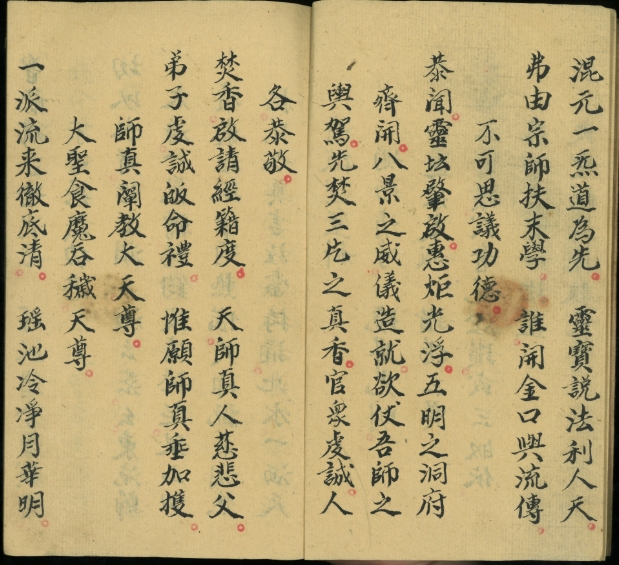 混元一炁道為先　靈寶説法利人天
弗由宗師扶末學　誰開金口與流傳
不可思議功德
恭聞靈坛肇啟惠炬光浮五明之洞府
齊開八景之威儀造就欲仗吾師之
輿駕先焚三炷之真香官衆虔誠人
各恭敬
焚香啟請經籍度　天師真人慈悲父
弟子虔誠皈命禮　惟願師真垂加擭
師真闡教大天尊
大聖食魔吞穢天尊
一派流来徹底清　瑶池冷凈月華明